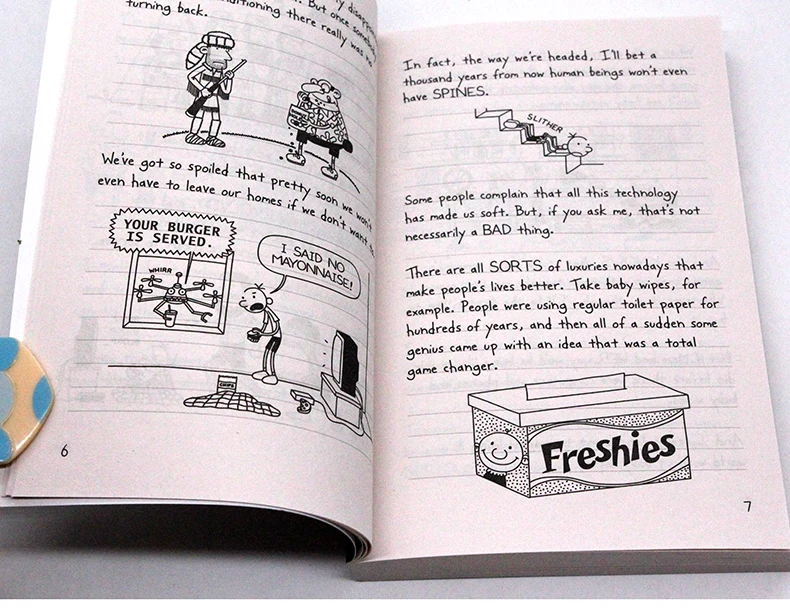 . But once
turning back.
We've got so spoiled that pretty soon we won't
even have to leave our homes if we don't want
YOUR BURGER
IS SERVED.
WHIRR
I SAID NO
MAYONNAISE!
CHIPS
6
In fact, the way we're headed, I'll bet a
thousand years from now human beings won't even
have SPINES.
SLITHER
Some people complain that all this technology
has made us soft. But, if you ask me, that's not
necessarily a BAD thing.
There are all SORTS of luxuries nowadays that
make people's lives better. Take baby wipes, for
example. People were using regular toilet paper for
hundreds of years, and then all of a sudden some
genius came up with an idea that was a total
game changer.
Freshies
7